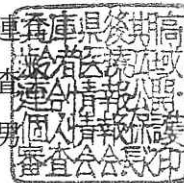 兵庫県後期高
齢者医療広域
連合情報公開・
個人情報保護
審査会会長印